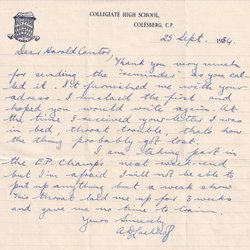 COLLEGIATE HIGH SCHOOL,
COLESBERG, C.P.
23 Sept. 1934.
Dear Harold Cantor,
Thank you very much
for sending the "reminder" as you cal
led it. It furnished me with your
adress. I mislaid the first and
hoped you would write again. At
the time I received your letter I was
in bed, throat trouble, thats how
the thing probably got lost.
I am taking part in
the E.P. Champs next week-end
but I'm afraid I will not be able to
put up anything but a weak show
This throat laid me up for 3 weeks
and gave me no time to train.
Yours Sincerely